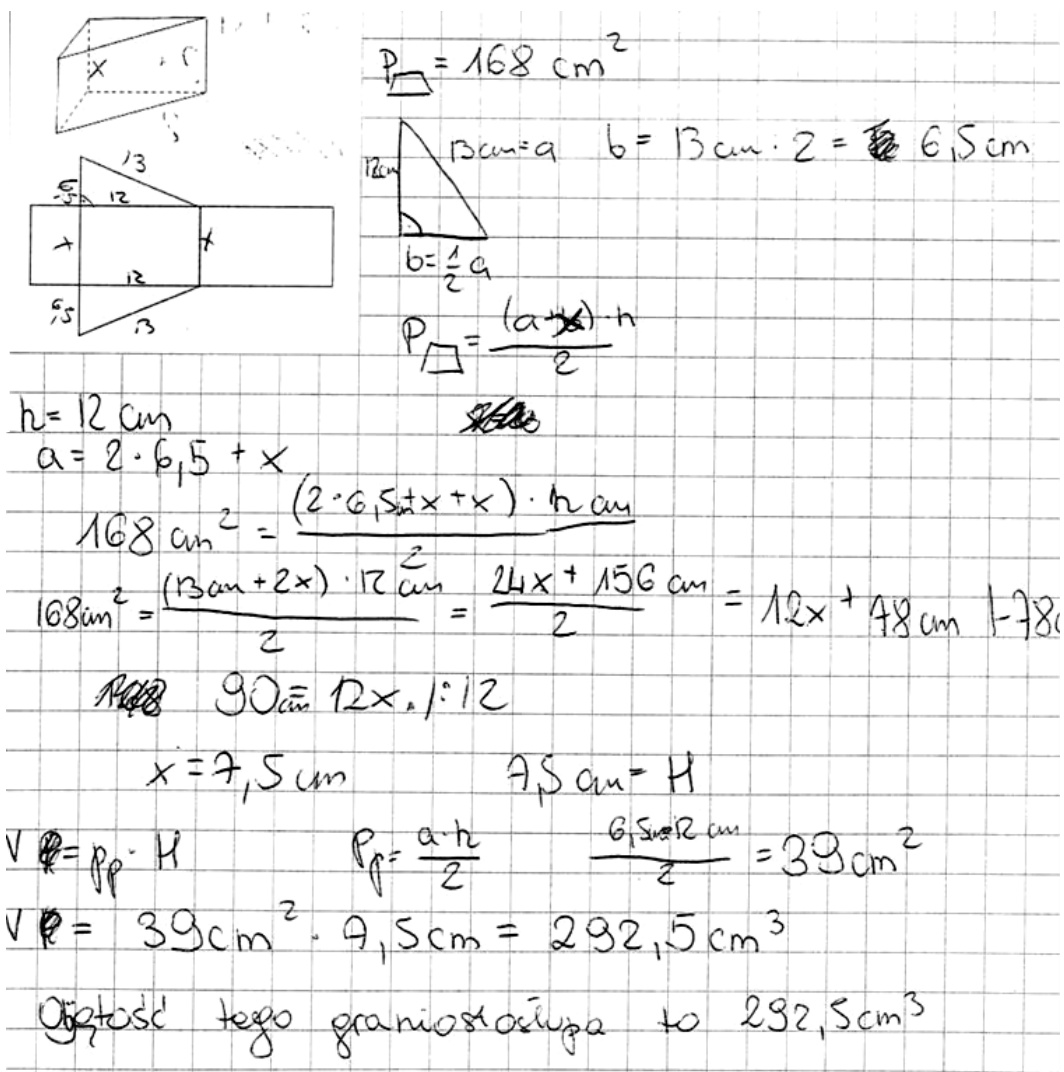 x
P = 168 cm²
13
6,5
12
x
x
12
6,5
13
12cm
13cm=a
b = 13cm · 2 = 6,5 cm
b = 1/2 a
P = (a+x)·h / 2
h = 12 cm
a = 2 · 6,5 + x
168 cm² = (2·6,5+x+x) · 12 cm / 2
168cm² = (13cm + 2x) · 12 cm / 2 = 24x + 156 cm / 2 = 12x + 78 cm |-78c
90cm = 12x. /:12
x = 7,5 cm
7,5 cm = H
V = Pp · H
Pp = a·h / 2
6,5cm·12 cm / 2 = 39cm²
V = 39cm² · 7,5cm = 292,5 cm³
Objętość tego graniostosłupa to 292,5cm³